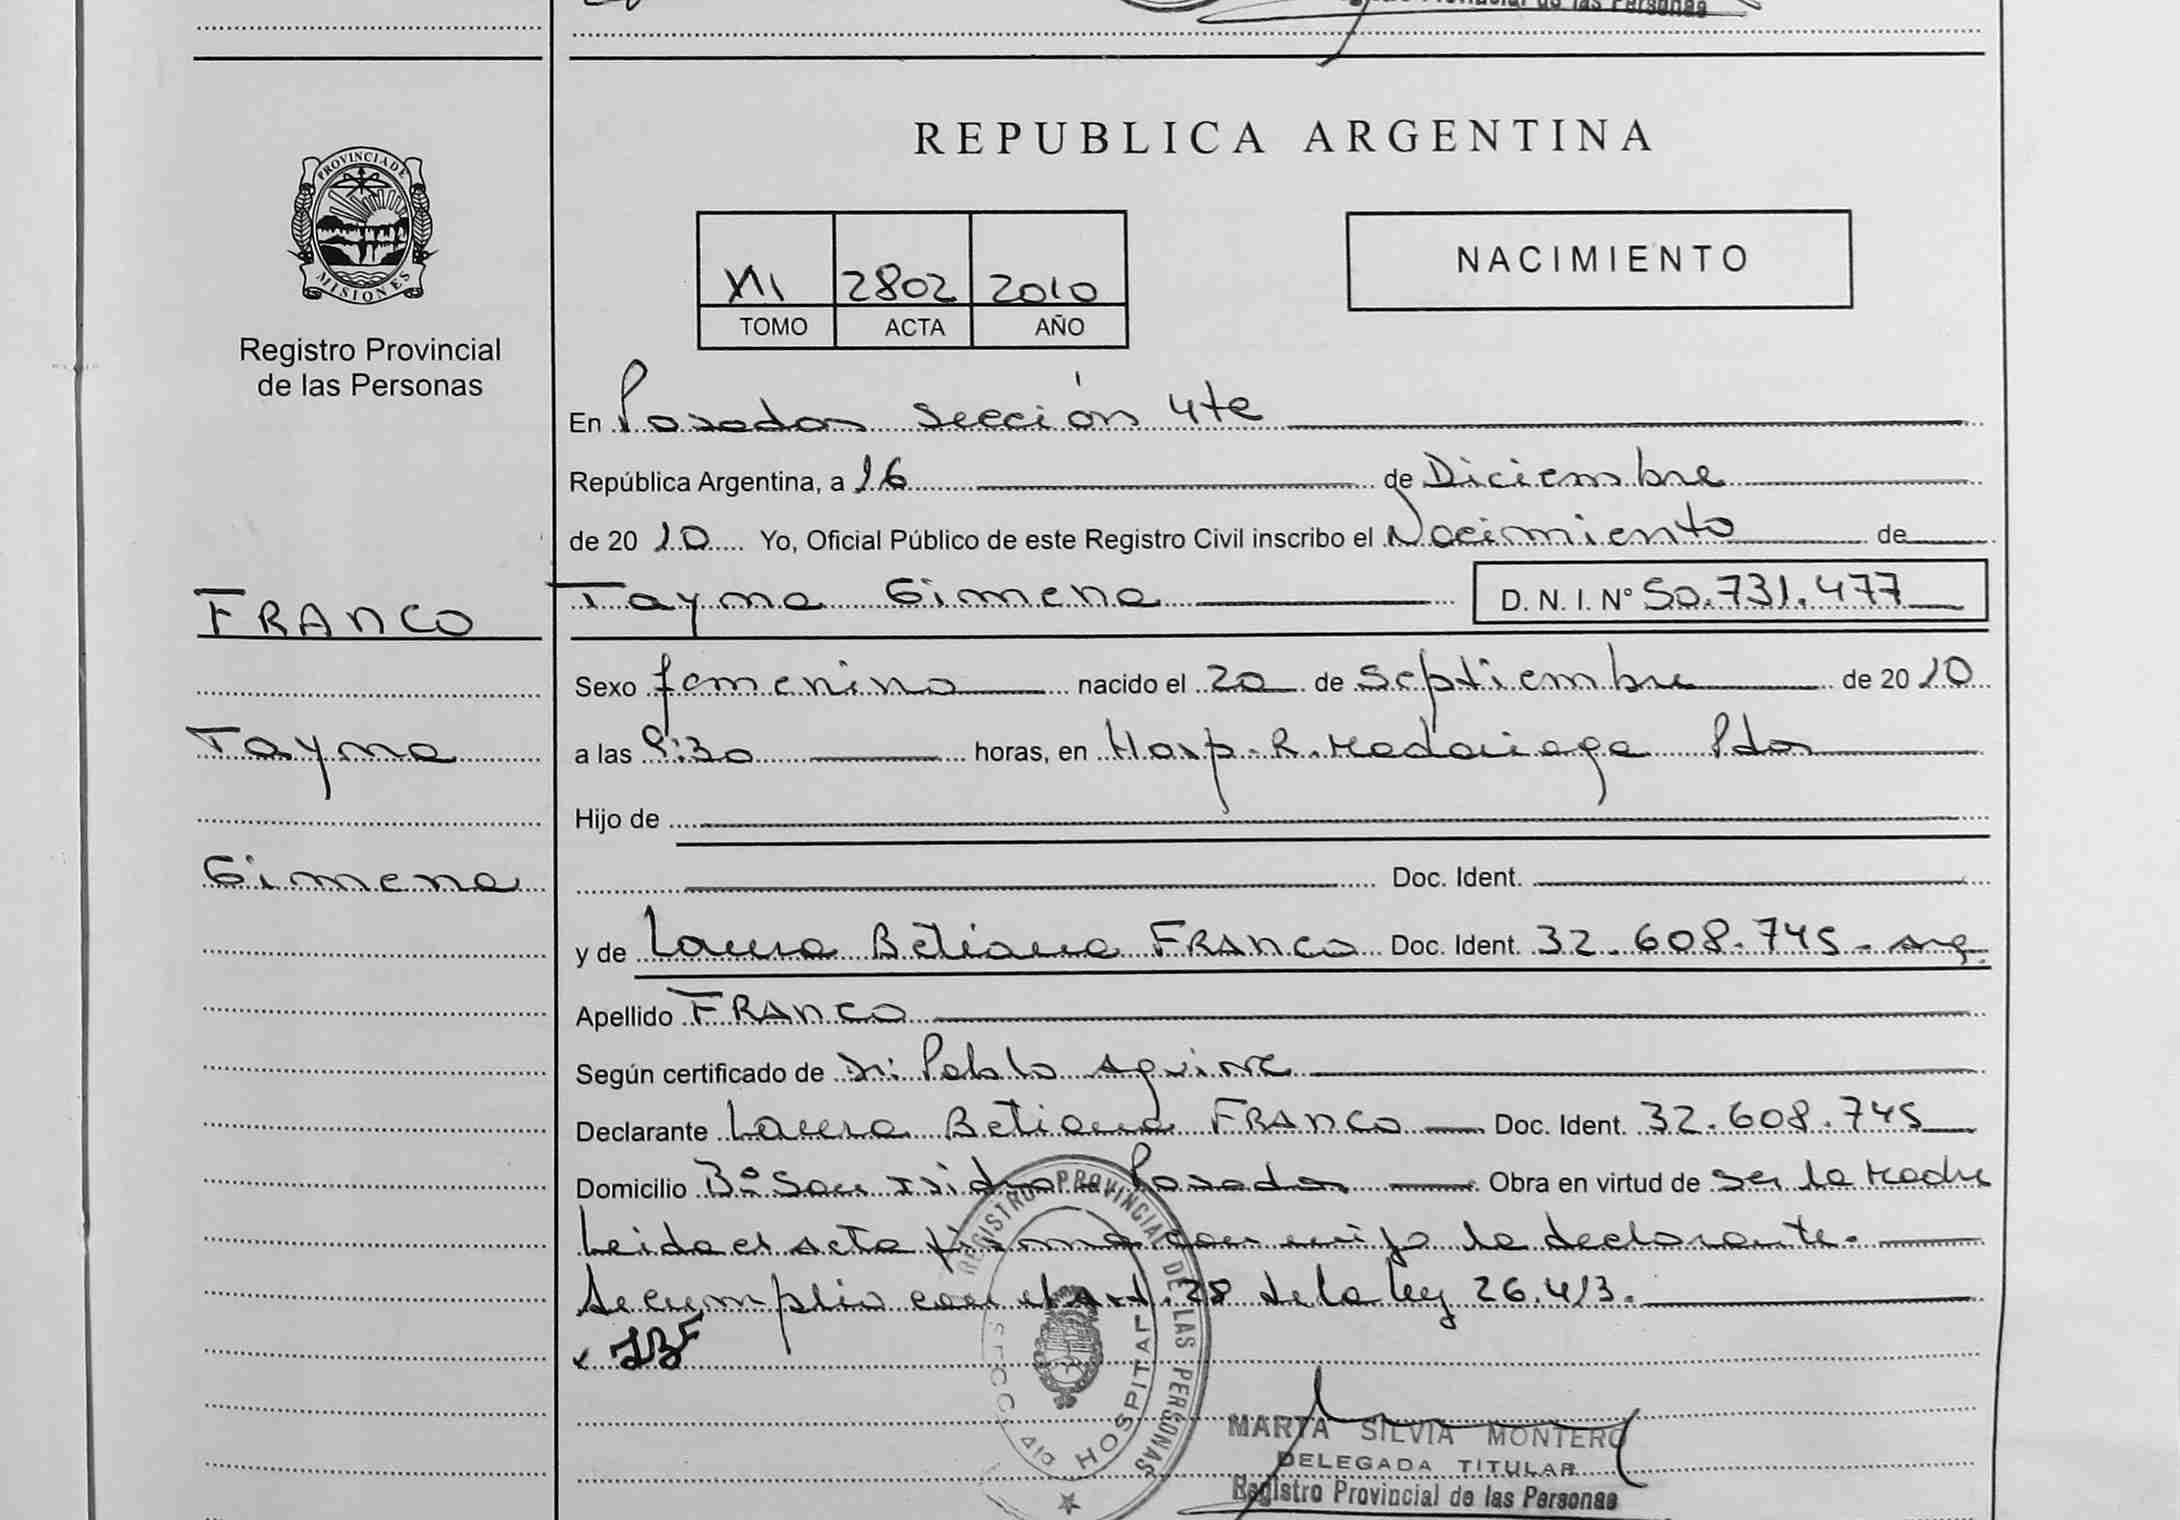 Registro Provincial de las Personas
PROVINCIA DE
MISIONES
Registro Provincial
de las Personas
FRANCO
Tayma
Gimena
REPUBLICA ARGENTINA
2802 2010
TOMO ACTA AÑO
NACIMIENTO
En Posadas Sección 4te
República Argentina, a 16 de Diciembre
de 2010 Yo, Oficial Público de este Registro Civil inscribo el Nacimiento de
Tayma Gimena D. N. I. Nº 50.731.477
Sexo femenino nacido el 20 de Septiembre de 2010
a las 9:30 horas, en Hosp. R. Madariaga Pdas
Hijo de
Doc. Ident.
y de Laura Betiana FRANCO Doc. Ident. 32.608.745 - arg.
Apellido FRANCO
Según certificado de Dr: Pablo Aguirre
Declarante Laura Betiana FRANCO Doc. Ident. 32.608.745
Domicilio Bº San Isidro - Posadas Obra en virtud de ser la Madre
Leida el acta firma conmigo la declarante.
Se cumplio con el Art. 28 de la ley 26.413.
x LBF
REGISTRO PROVINCIAL DE LAS PERSONAS
SECC. 4ta HOSPITAL
MARTA SILVIA MONTERO
DELEGADA TITULAR
Registro Provincial de las Personas